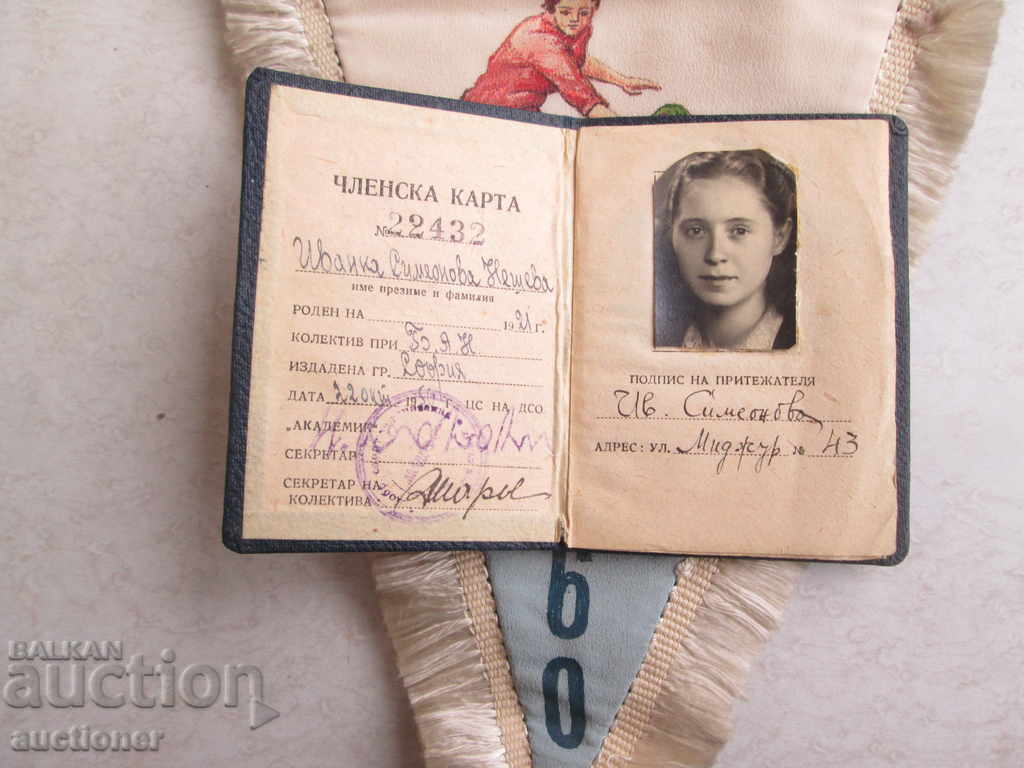 ЧЛЕНСКА КАРТА
№ 22432
Иванка Симеонова Нешева
име презиме и фамилия
РОДЕН НА 1921 г.
КОЛЕКТИВ ПРИ Б.А.Н
ИЗДАДЕНА ГР. София
ДАТА 22 окт 195 г. ЦС НА ДСО
„АКАДЕМИК“
СЕКРЕТАР
СЕКРЕТАР НА
КОЛЕКТИВА:
ПОДПИС НА ПРИТЕЖАТЕЛЯ
Ив. Симеонова
АДРЕС: УЛ. Миджур № 43
60
BALKAN
auction
auctioner